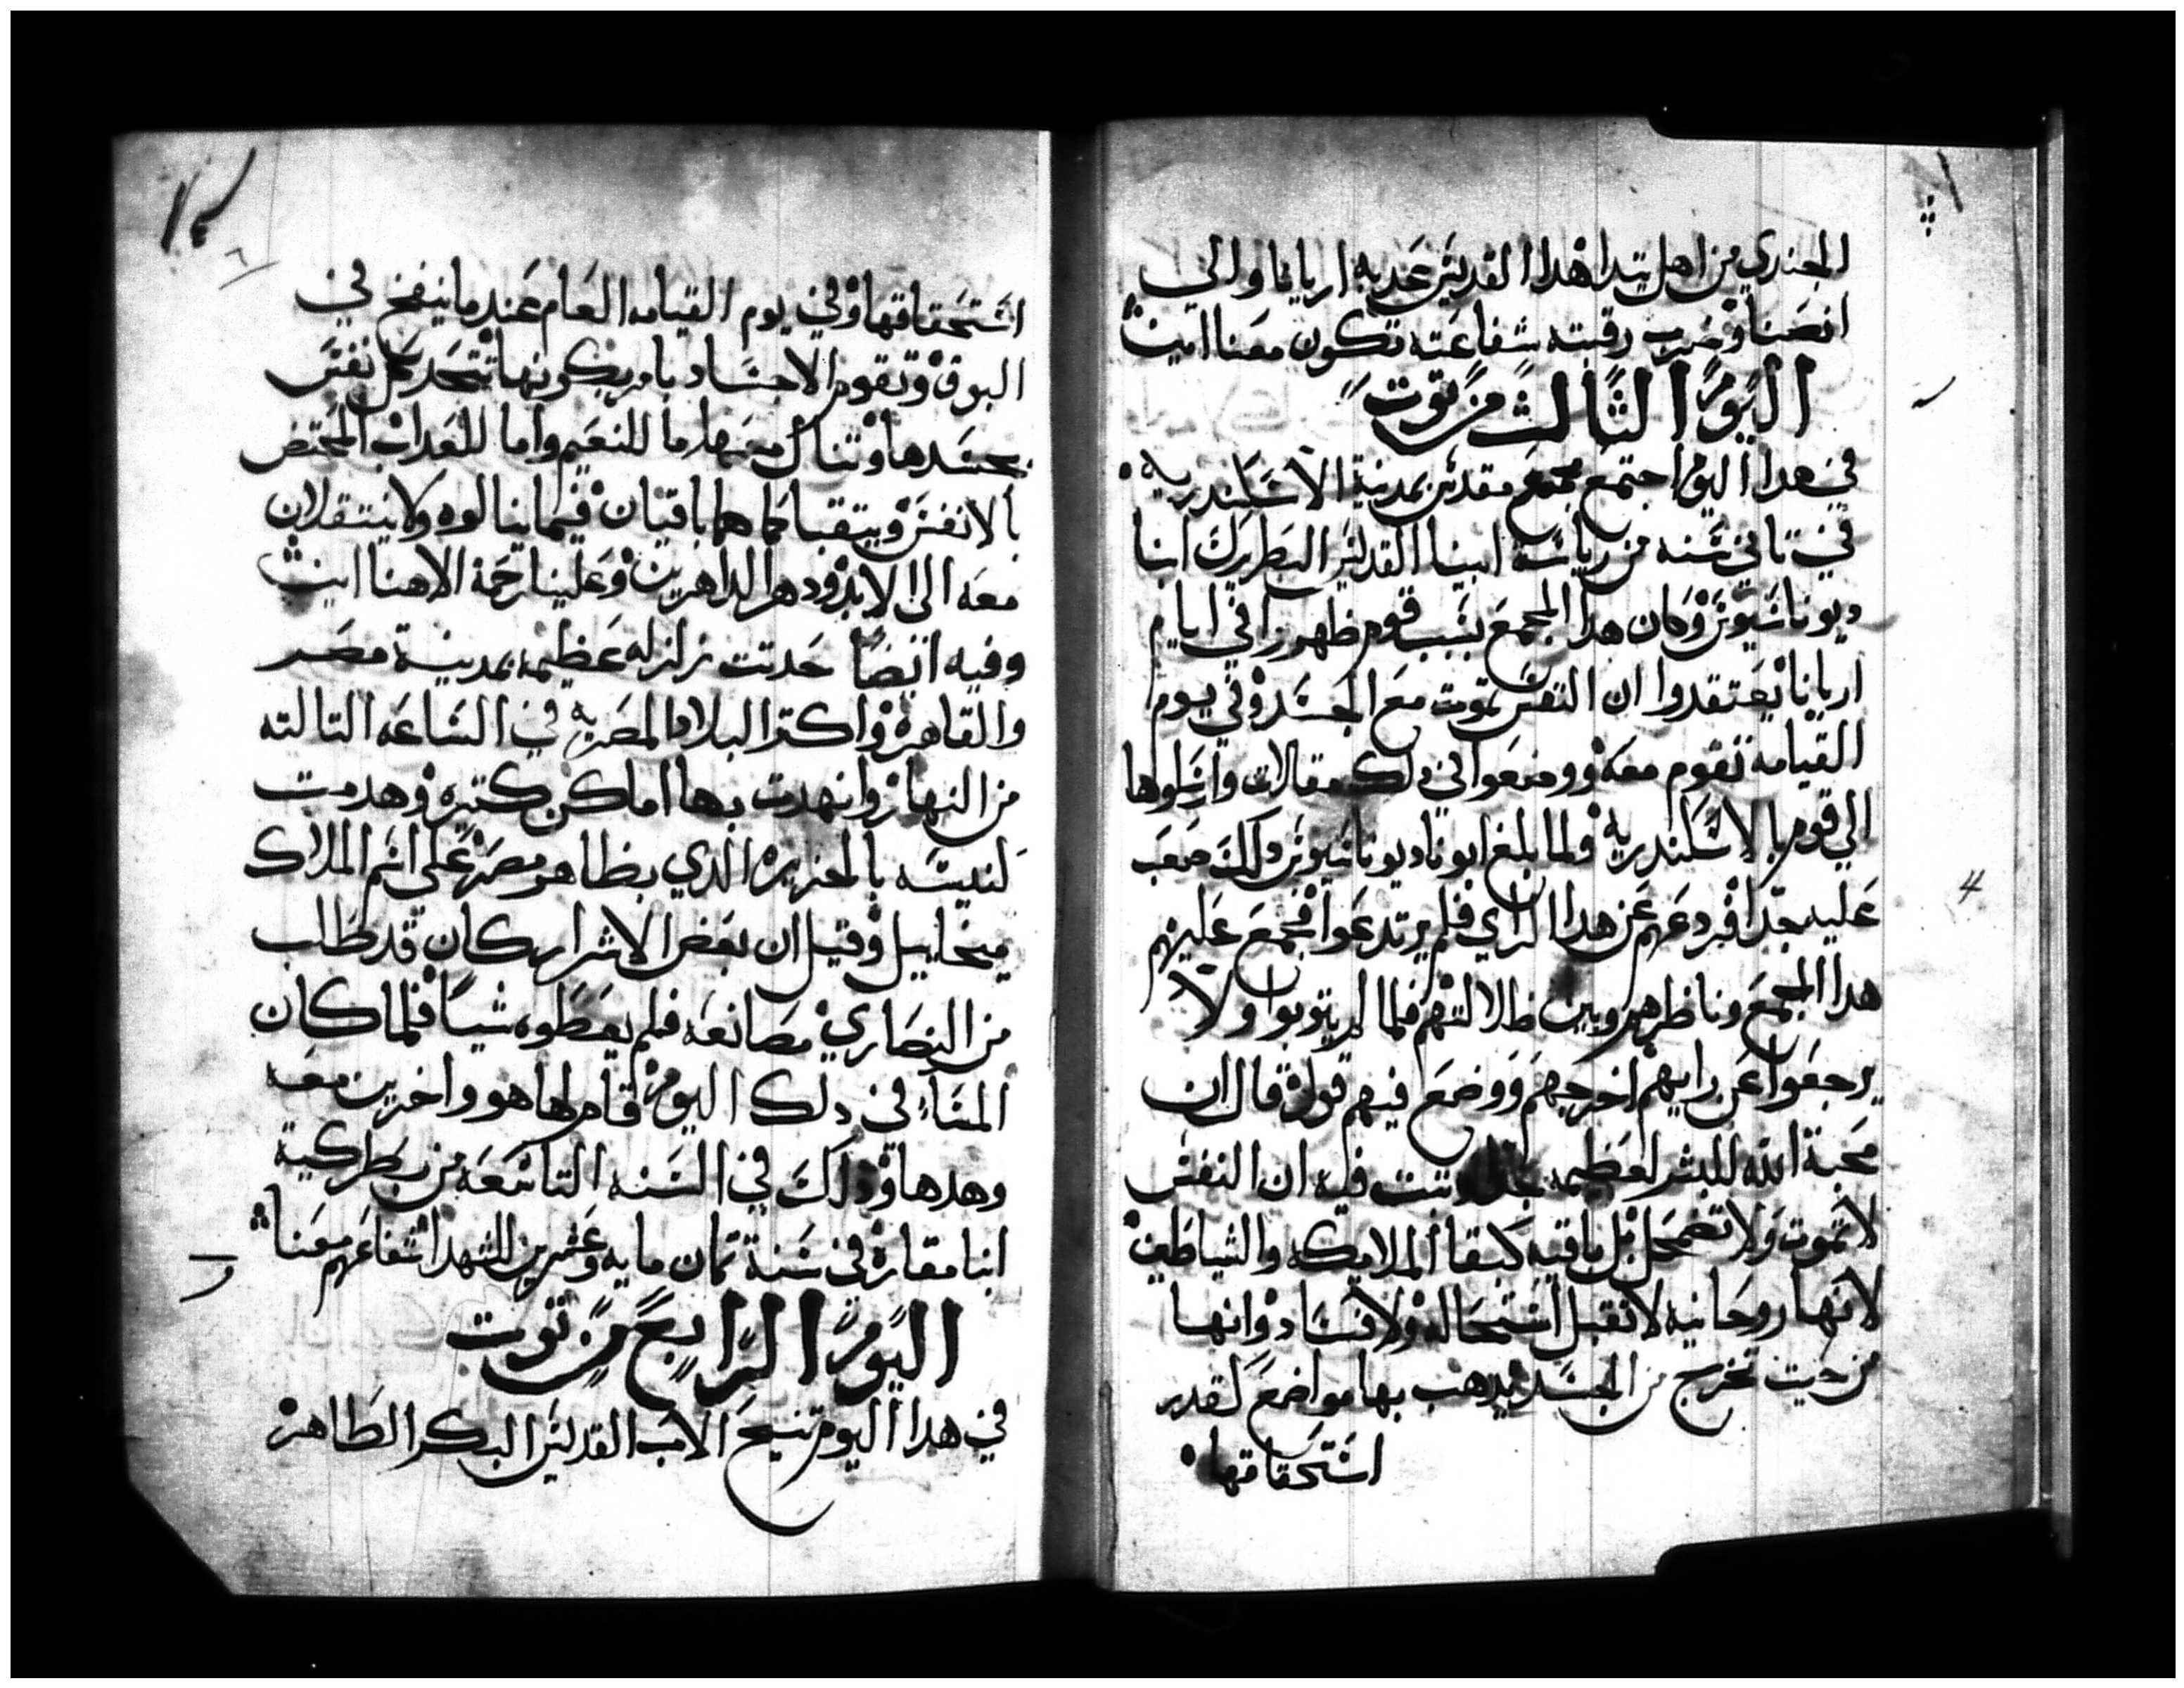 الجندي من اهل تندا هدا القديس عذبه اريانا والي
انصنا وضرب رقبته شفاعته تكون معنا امين
اليوم الثالث من توت
في هدا اليوم اجتمع مجمع مقدس بمدينة الاسكندريه
في تاني سنه من رياسة ابينا القديس البطريرك انبا
ديوناسيوس وكان هدا المجمع بسبب قوم ظهروا في ايام
اريانا يعتقدوا ان النفس تموت مع الجسد وفي يوم
القيامه تقوم معه ووضعوا في دلك مقالات وارسلوها
الي قوم بالاسكندريه فلما بلغ ابونا ديوناسيوس دلك صعب
عليه جدا فردعهم عن هدا الراي فلم يرتدعوا فجمع عليهم
هدا المجمع وناظرهم وبين ظلالتهم فلما لم يتوبوا ولا
يرجعوا عن رايهم اخرجهم ووضع فيهم قولا قال ان
محبة الله للبشر لعظيمه جدا وتبت فيه ان النفس
لا تموت ولا تضمحل بل باقيه كبقا الملايكه والشياطين
لانها روحانيه لا تقبل استحاله ولا فساد وانها
من حيت تخرج من الجسد يدهب بها مواضع لقدر
استحقاقها
٦
استحقاقها وفي يوم القيامه العام عندما ينفخ في
البوق وتقوم الاجساد بامر يكونها تتحد كل نفس
بجسدها وتنال معها اما للنعيم واما للعداب المختص
بالانفس ويتقبا كما هما باقيان فيما ينالوه ولا ينتقلان
معه الي الابد ودهر الداهرين وعلينا رحمة الاهنا امين
وفيه ايضا حدتت زلزله عظيمه بمدينة مصر
والقاهره واكتر البلاد المصريه في الساعه التالته
من النهار وانهدت بها اماكن كتيره وهدمت
كنيسه بالجزيره الدي بظاهر مصر علي اسم الملاك
ميخاييل وقيل ان بعض الاشرار كان قد طلب
من النصاري مصانعه فلم يعطوه شيا فلما كان
المسا في دلك اليوم قام لها هو واخرين معه
وهدها ودلك في السنه التاسعه من بطركية
انبا مقاره في سنة تمان مايه وعشرين للشهدا شفاعتهم معنا
اليوم الرابع من توت
في هدا اليوم تنيح الاب القديس البكر الطاهر